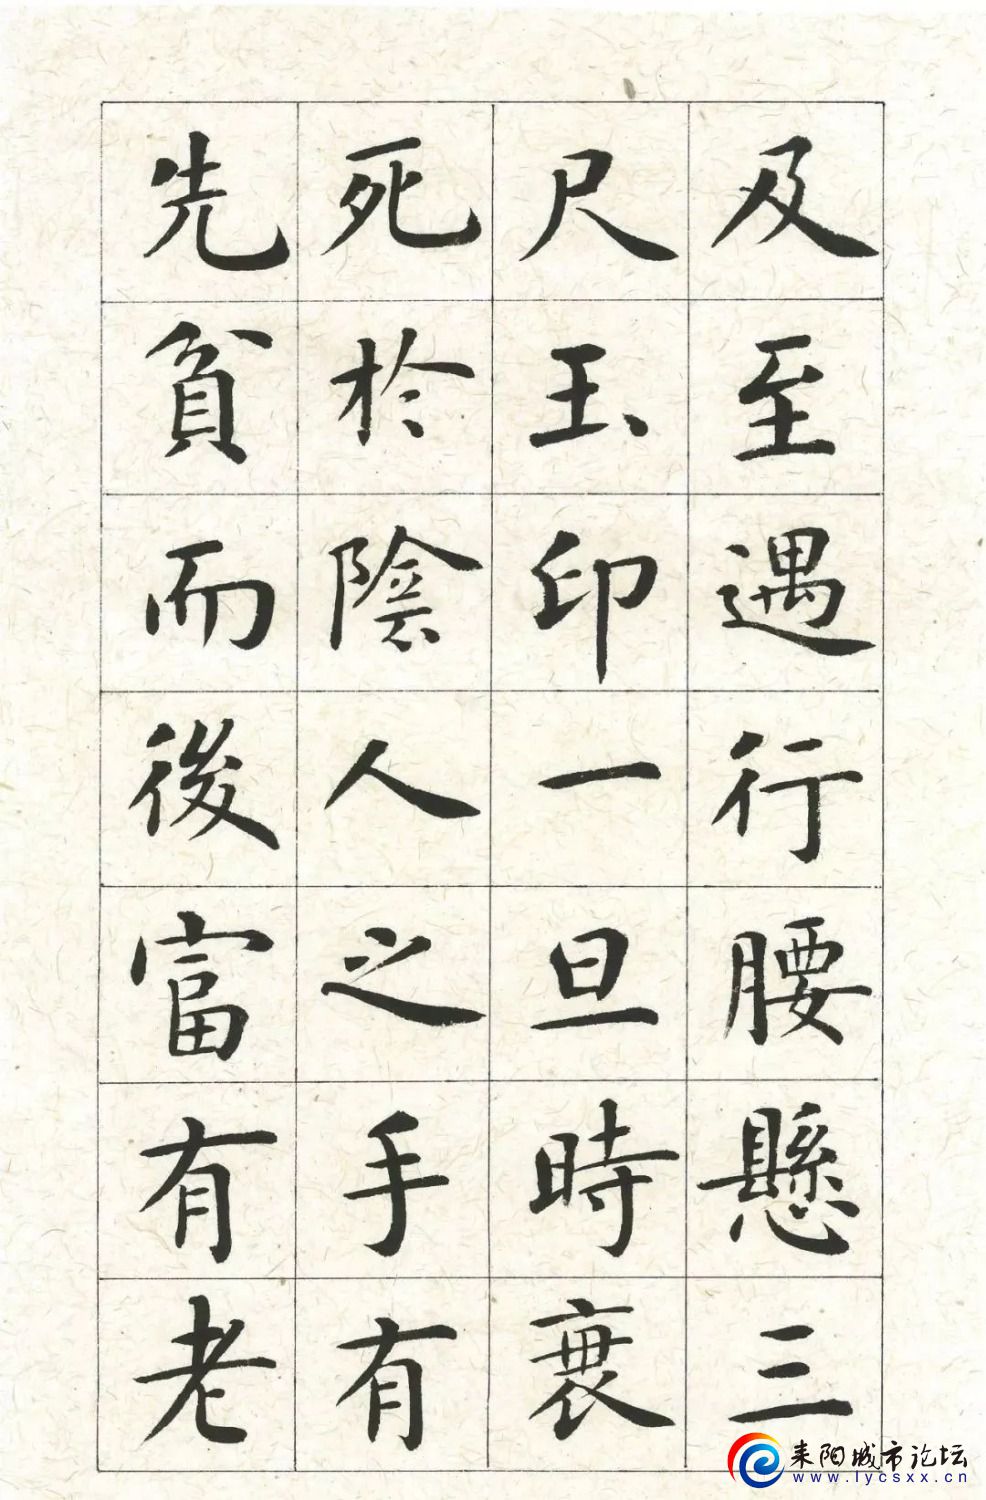 及至遇行腰懸三
尺玉印一旦時衰
死於陰人之手有
先貧而後富有老
耒阳城市论坛
www.lycsxx.cn